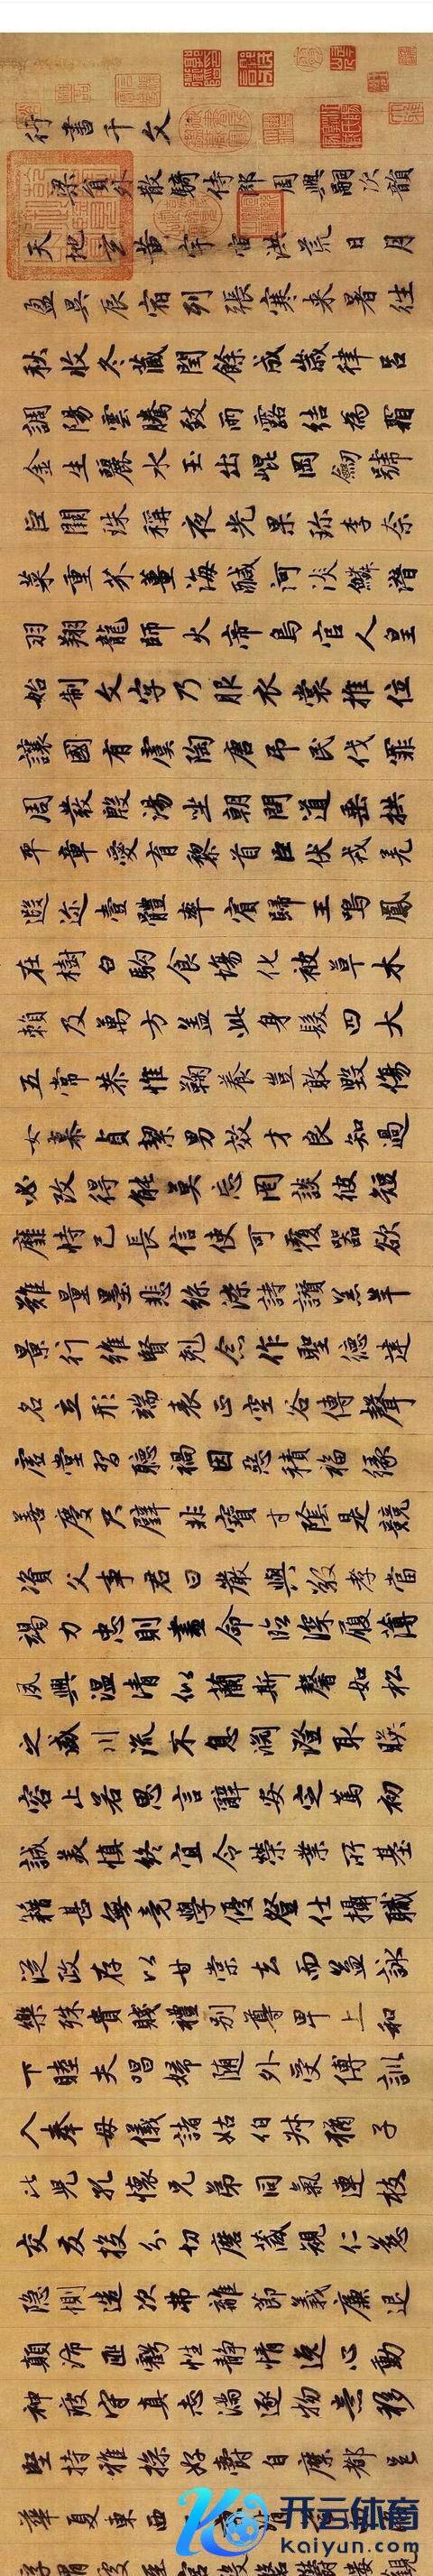 行書千文
梁員外散騎侍郎周興嗣次韻
天地玄黃宇宙洪荒日月
盈昃辰宿列張寒来暑往
秋收冬藏閏餘成歲律吕
調陽雲騰致雨露結為霜
金生麗水玉出崐岡劒號
巨闕珠稱夜光果珍李柰
菜重芥薑海醎河淡鱗潛
羽翔龍師火帝鳥官人皇
始制文字乃服衣裳推位
讓國有虞陶唐弔民伐罪
周發殷湯坐朝問道垂拱
平章愛育黎首臣伏戎羌
遐迩壹體率賓歸王鳴鳳
在樹白駒食場化被草木
賴及萬方盖此身髮四大
五常恭惟鞠養豈敢毀傷
女慕貞絜男效才良知過
必改得能莫忘罔談彼短
靡恃己長信使可覆器欲
難量墨悲絲染詩讚羔羊
景行維賢剋念作聖德建
名立形端表正空谷傳聲
虛堂習聽禍因惡積福緣
善慶尺璧非寶寸陰是競
資父事君曰嚴與敬孝當
竭力忠則盡命臨深履薄
夙興温清似蘭斯馨如松
之盛川流不息淵澄取暎
容止若思言辭安定篤初
誠美慎終宜令榮業所基
籍甚無竟學優登仕攝職
從政存以甘棠去而益詠
樂殊貴賤禮別尊卑上和
下睦夫唱婦随外受傅訓
入奉母儀諸姑伯叔猶子
比兒孔懷兄弟同氣連枝
交友投分切磨箴規仁慈
隱惻造次弗離節義廉退
顛沛匪虧性靜情逸心動
神疲守真志滿逐物意移
堅持雅操好爵自縻都邑
華夏東西
开云体育
Kaiyun.com